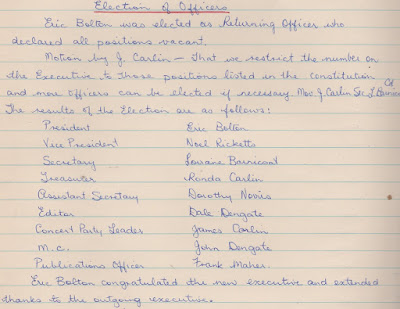 Election of Officers
Eric Bolton was elected as Returning Officer who
declared all positions vacant.
Motion by J. Carlin – That we restrict the number on
the Executive to those positions listed in the constitution
and more Officers can be elected if necessary. Mov. J. Carlin Sec. L. Barnicoat Cd
The results of the Election are as follows:
President Eric Bolton
Vice President Noel Ricketts
Secretary Lorraine Barnicoat
Treasurer Ronda Carlin
Assistant Secretary Dorothy
Editor Dale Dengate
Concert Party Leader James Carlin
M.C. John Dengate
Publications Officer Frank Maher.
Eric Bolton congratulated the new executive and extended
thanks to the outgoing executive.